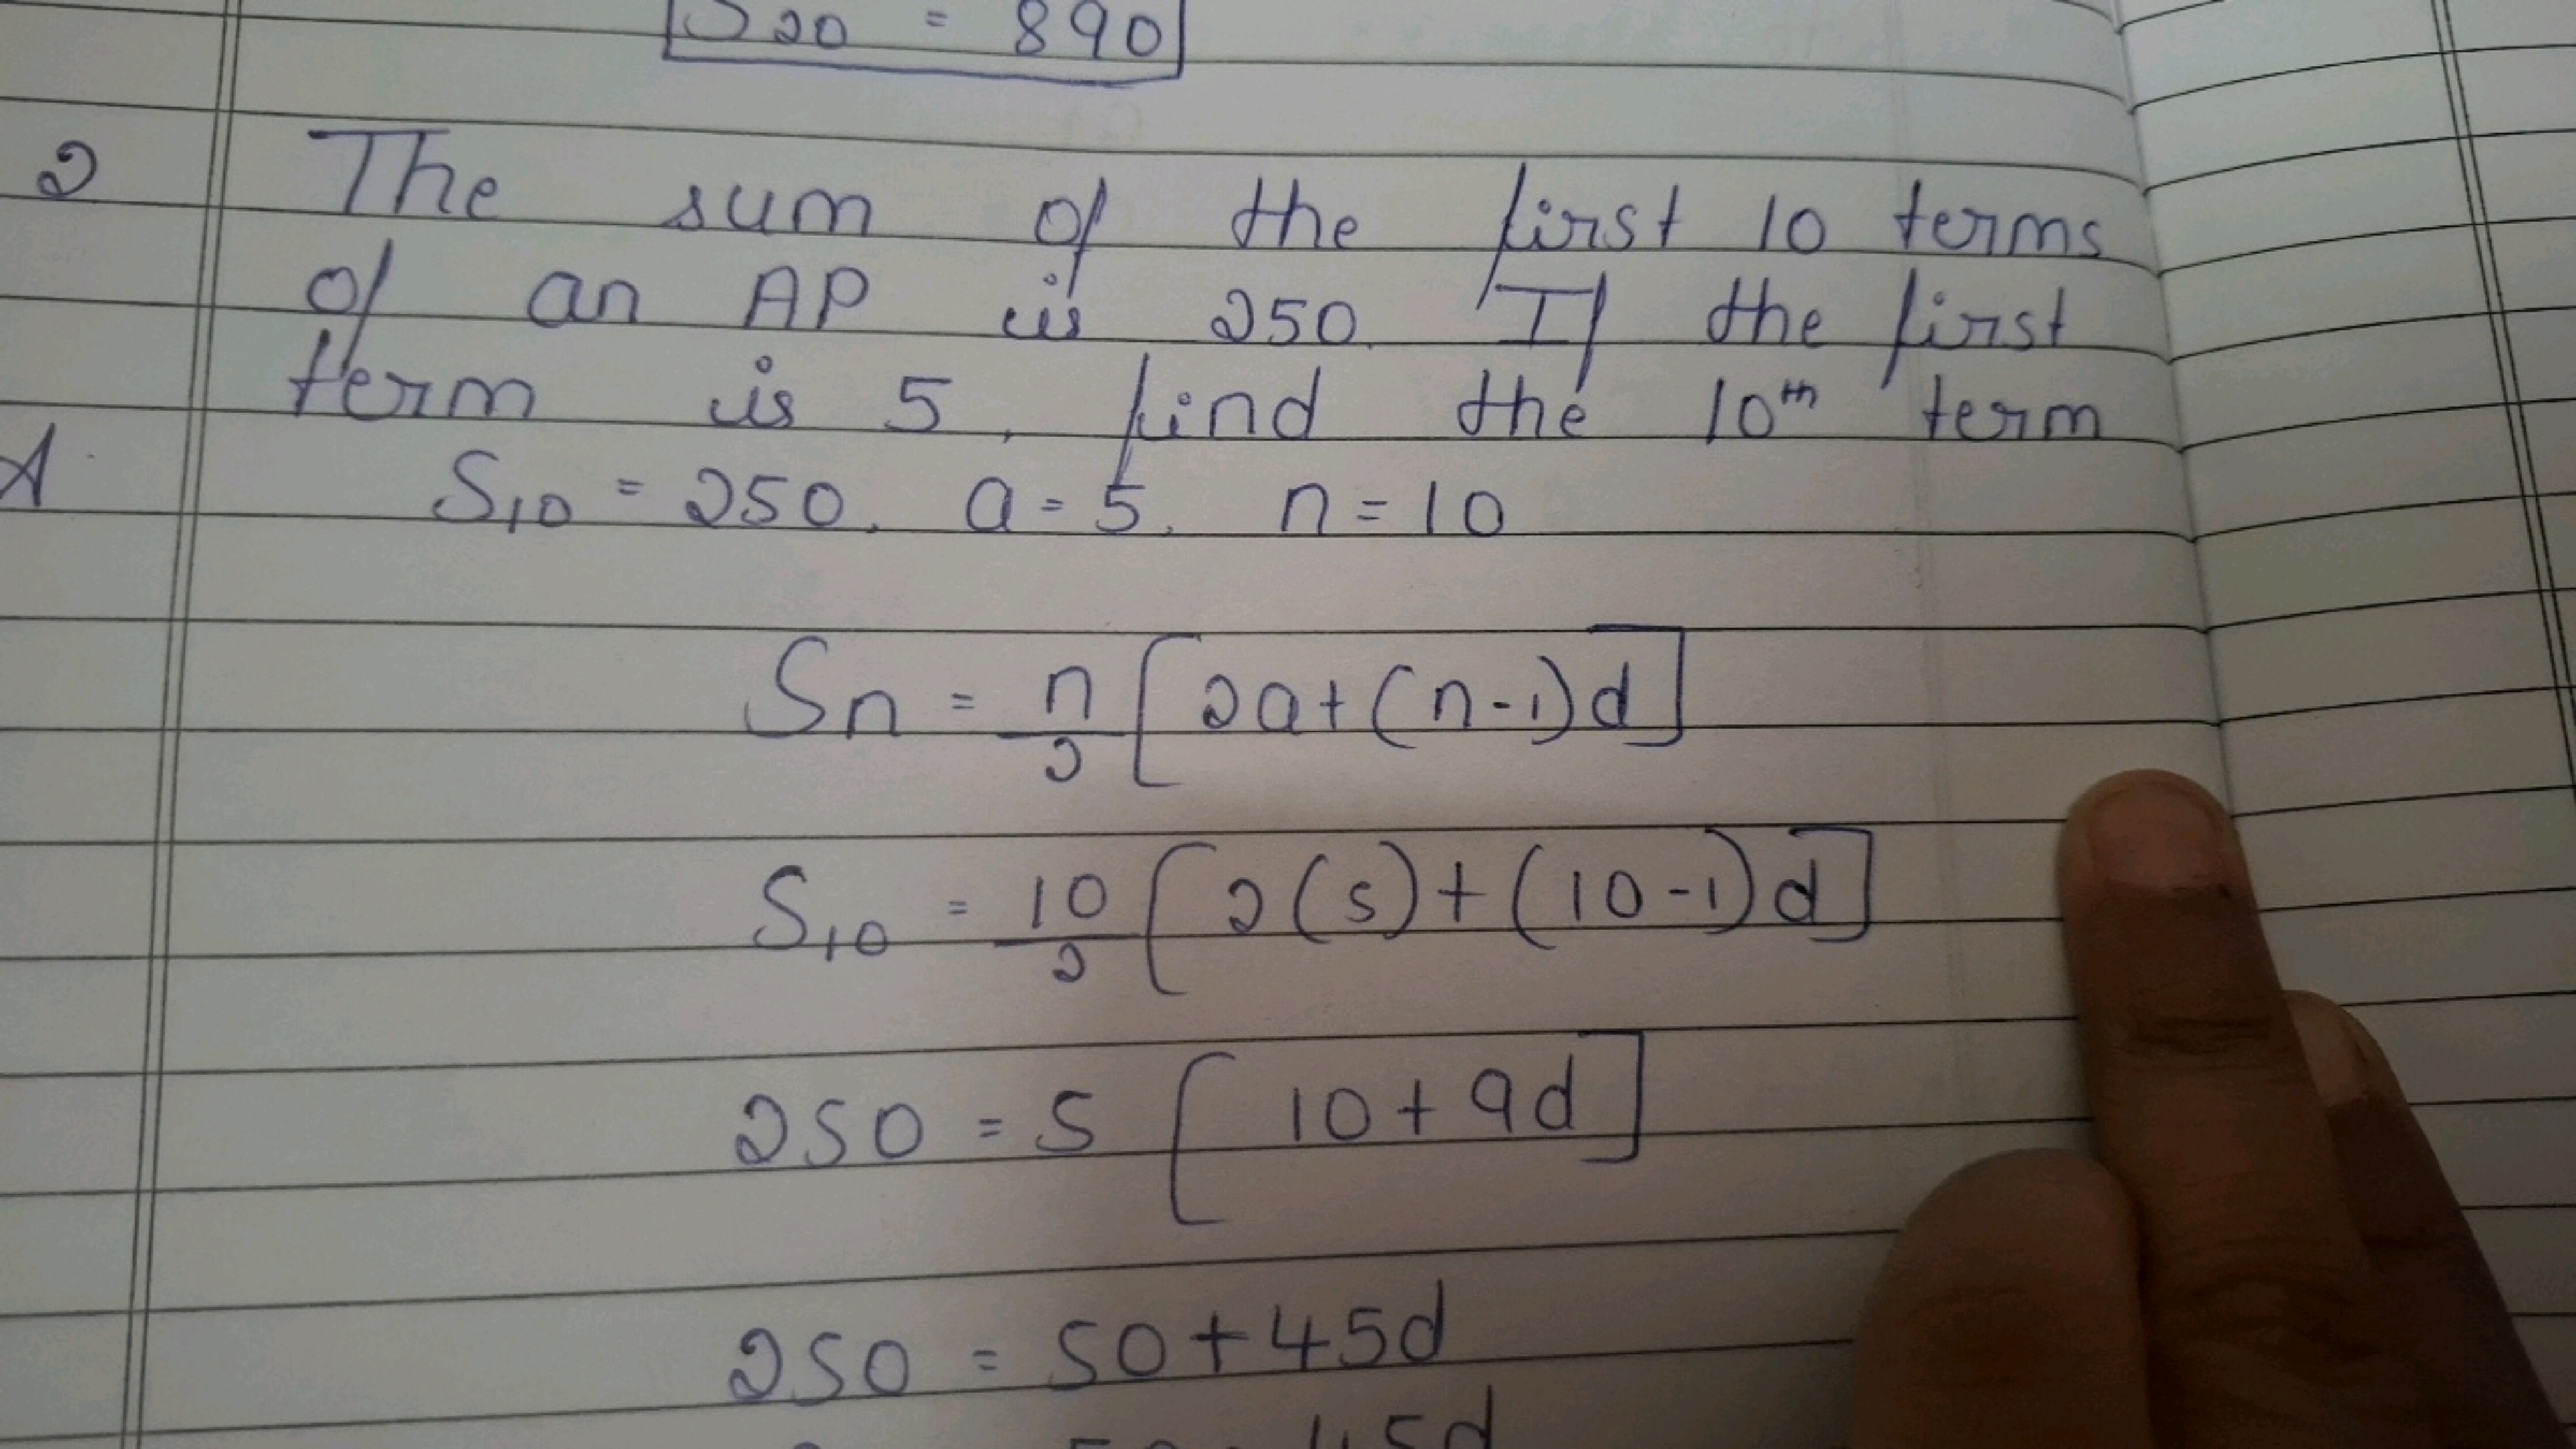 S20 = 890
2 The sum of the first 10 terms
of an AP is 250. If the first
term is 5, find the 10th term
A S10 = 250, a = 5, n = 10
Sn = n/2 [2a+(n-1)d]
S10 = 10/2 [2(5)+(10-1)d]
250 = 5 [10+9d]
250 = 50+45d
45d